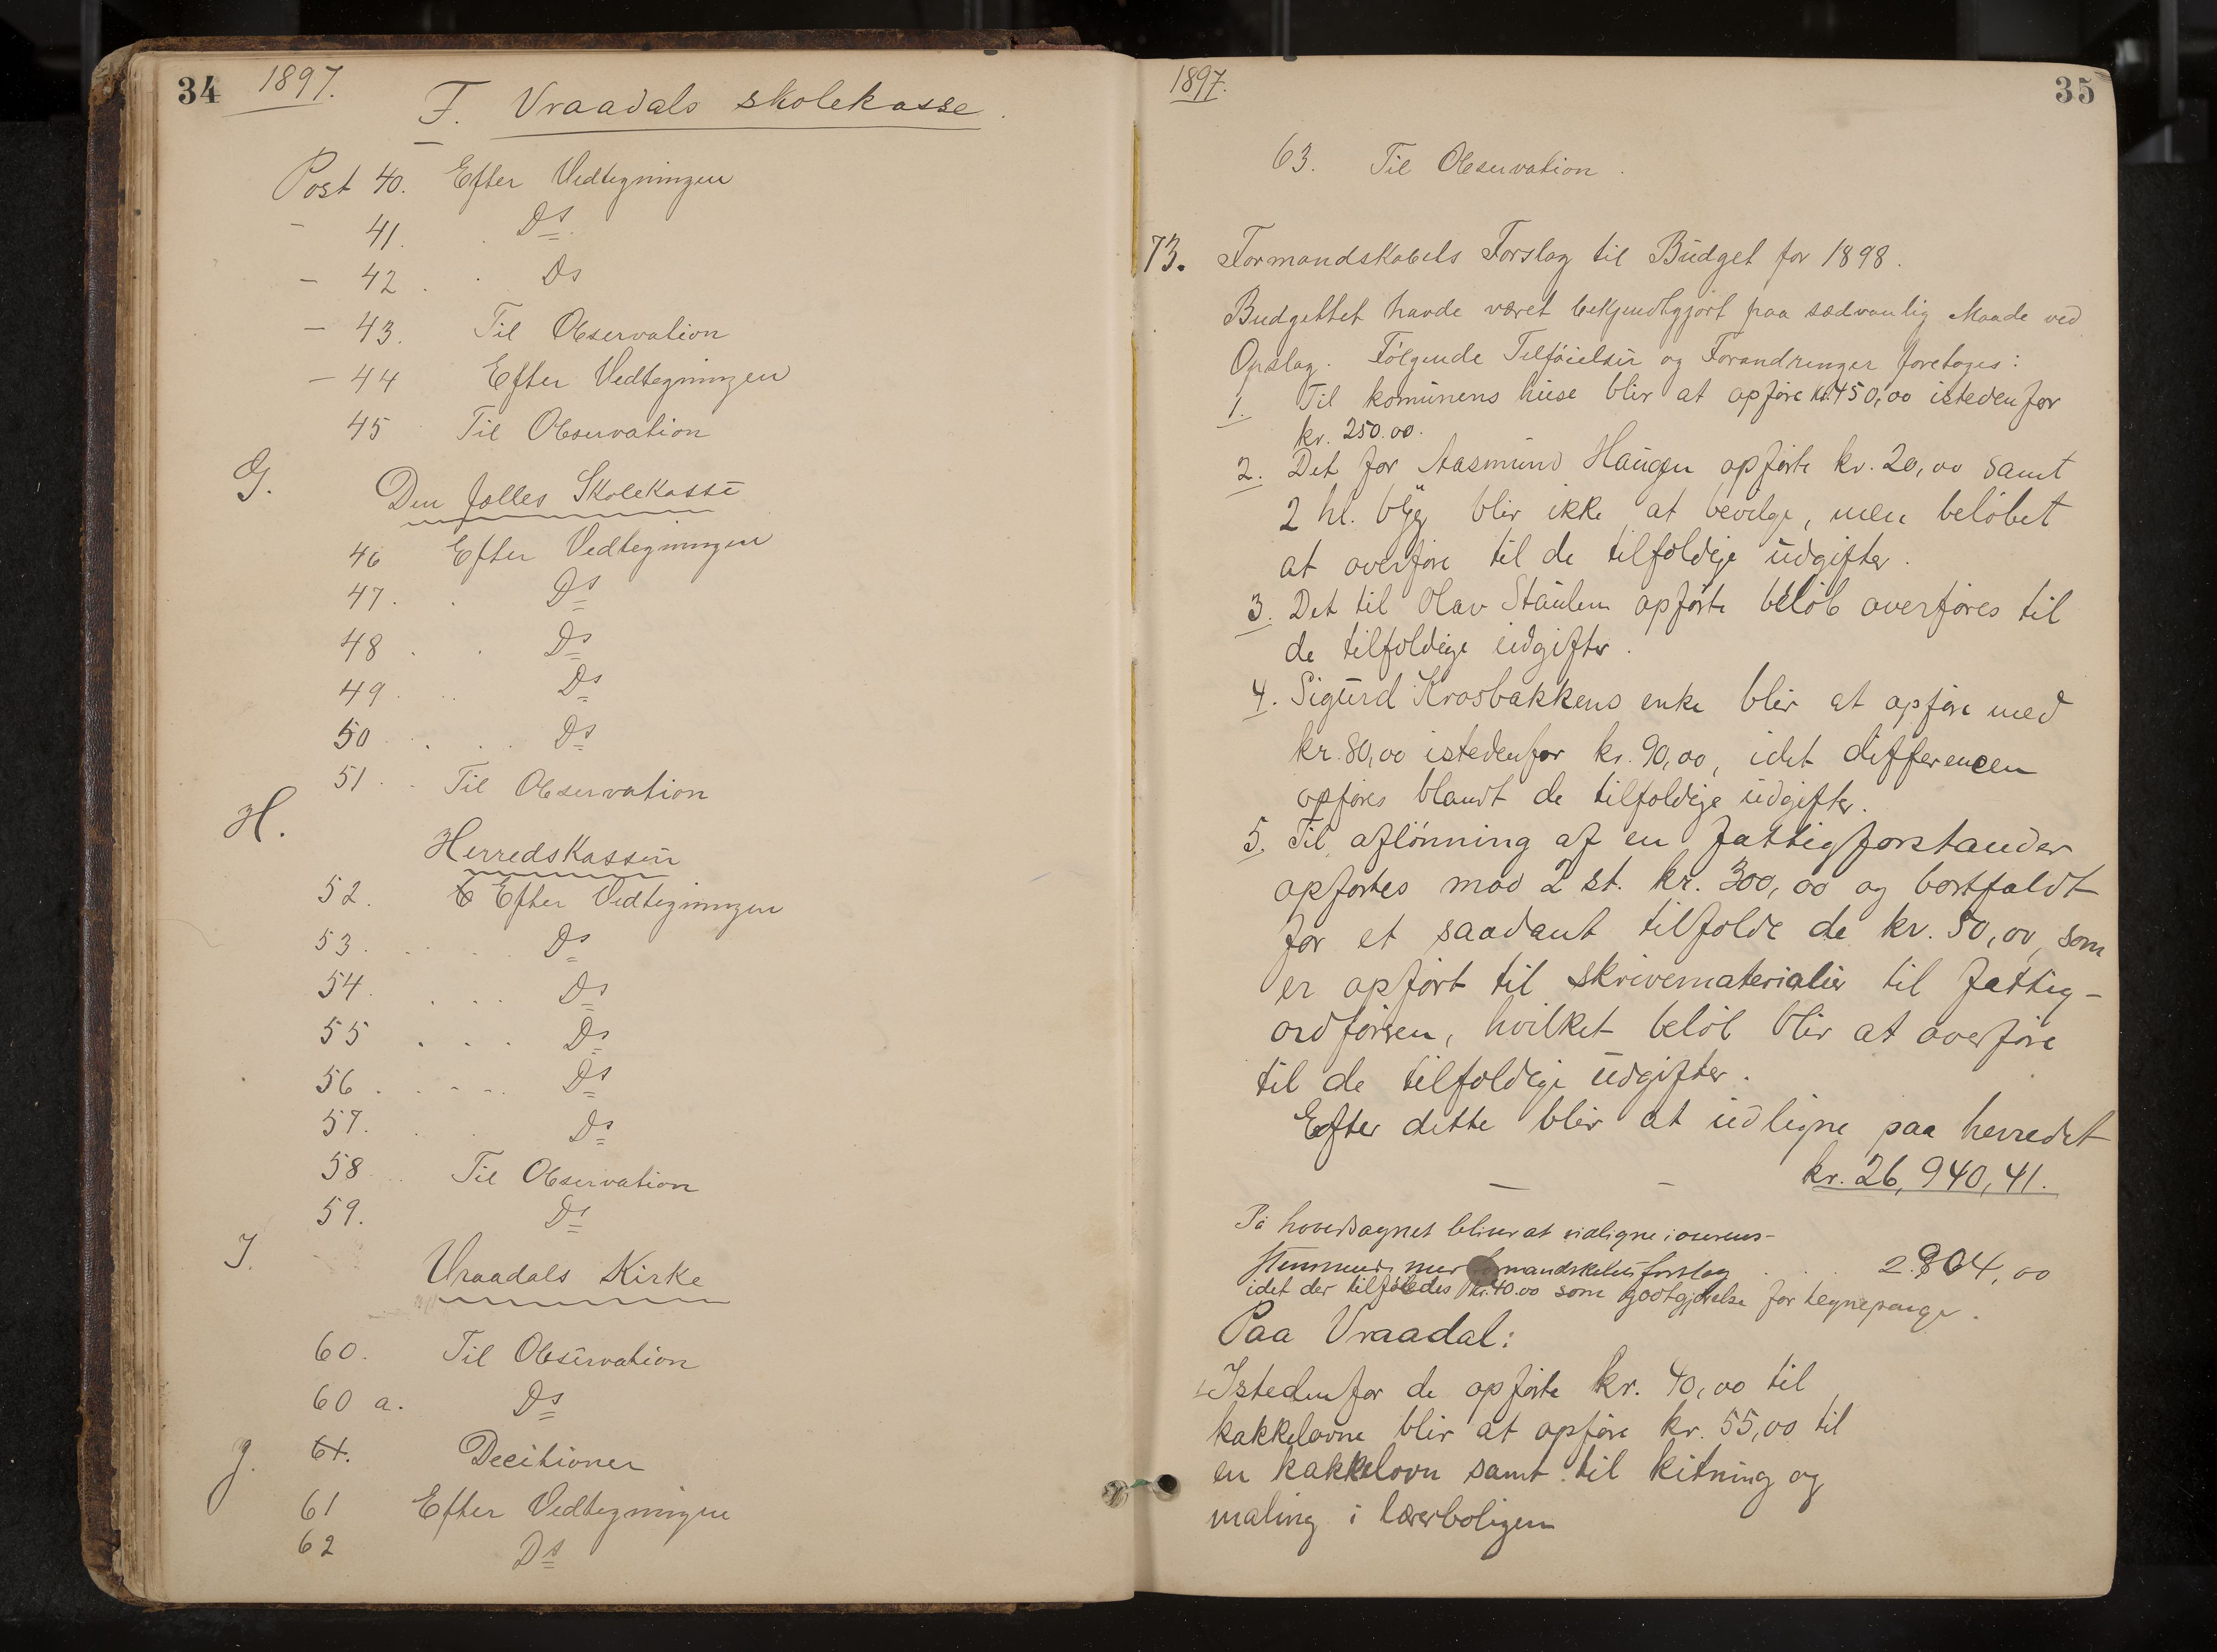 34 1897.
F. Vraadals skolekasse.
Post 40. Efter Vedtegningen
- 41. Ds
- 42. Ds
- 43. Til Observation
- 44 Efter Vedtegningen
45 Til Observation
G. Den fælles Skolekasse
46 Efter Vedtegningen
47. Ds
48 Ds
49. Ds
50 Ds
51. Til Observation
H. Herredskassen
52. Efter Vedtegningen
53. Ds
54. Ds
55 Ds
56. Ds
57. Ds
58 Til Observation
59. Ds
I. Vraadals Kirke
60. Til Observation
60 a. Ds
J. 61. Decitioner
61 Efter Vedtegningen
62 Ds
1897. 35
63. Til Observation.
73. Formandskabets Forslag til Budget for 1898.
Budgettet havde været bekjendtgjort paa sædvanlig Maade ved
Opslag. Følgende Tilføielser og Forandringer foretages:
1. Til komunens huse blir at opføre kr. 450,00 istedenfor
kr. 250.00.
2. Det for Aasmund Haugen opførte kr. 20,00 samt
2 hl. byg blir ikke at bevilge, men beløbet
at overføre til de tilfældige udgifter.
3. Det til Olav Staulen opførte beløb overføres til
de tilfældige udgifter.
4. Sigurd Krosbakkens enke blir at opføre med
kr. 80,00 istedenfor kr. 90,00, idet differencen
opføres blandt de tilfældige udgifter.
5. Til aflønning af en fattigforstander
opførtes mod 2 st. kr. 300,00 og bortfaldt
for et saadant tilfælde de kr. 50,00, som
er opført til skrivematerialier til fattig-
ordføreren, hvilket beløb blir at overføre
til de tilfældige udgifter.
Efter dette blir at udligne paa herredet
kr. 26,940,41.
På hovedsognet bliver at udligne i overens-
stemmende med formandskabets forslag . . . 2804,00
idet der tilføiedes kr. 40.00 som godtgjørelse for tegnepenge.
Paa Vraadal:
Istedenfor de opførte kr. 40,00 til
kakkelovne blir at opføre kr. 55,00 til
en kakkelovn samt til kitning og
maling i lærerboligen